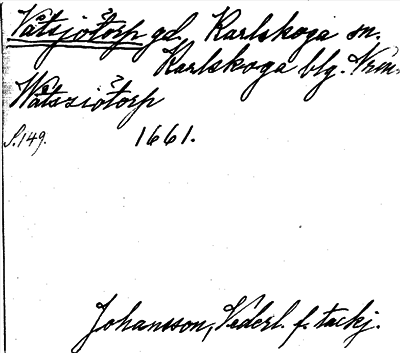 Våtsjötorp gd, Karlskoga sn.
Karlskoga blg. Vrm.
Wåtsziötorp
S. 149. 1661.
Johansson, Vederl. f. tackj.